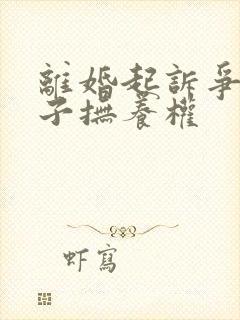 離婚起訴爭
子撫養權
虾寫